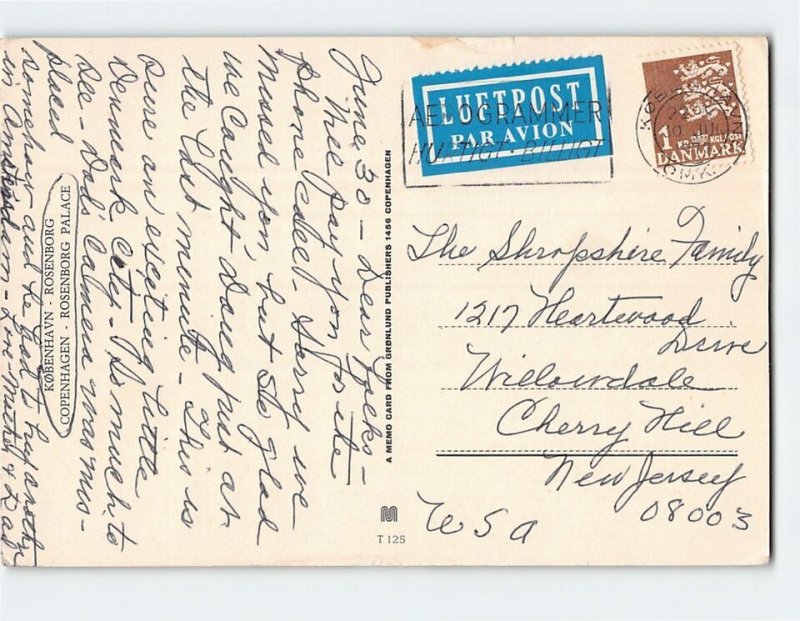 June 30 - Dear Folks -
Will pay you for the
phone call. Sorry we
missed you, but so glad
we caught Doug just at
the last minute. This is
sure an exciting little
Denmark City - So much to
see - Dads Camera was mis-
placed
somehow and he had to buy another
in Amsterdam - Love - Mother & Dad
KØBENHAVN - ROSENBORG
COPENHAGEN - ROSENBORG PALACE
A MEMO CARD FROM GRØNLUND PUBLISHERS 1456 COPENHAGEN
T 125
LUFTPOST
PAR AVION
AEROGRAMMER
HURTIGT - BILLIGT
1
DANMARK
The Shropshire Family
1217 Heartwood
Drive
Willowdale
Cherry Hill
New Jersey
08003
USA